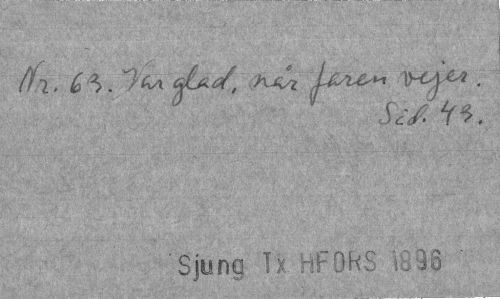 Nr. 63. Var glad, når faren vejer.
Sid. 43.
Sjung Tx HFORS 1896